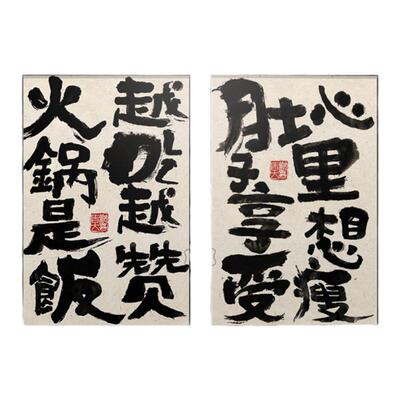 心里想瘦
肚子享受
越吃越赞
火鍋是飯